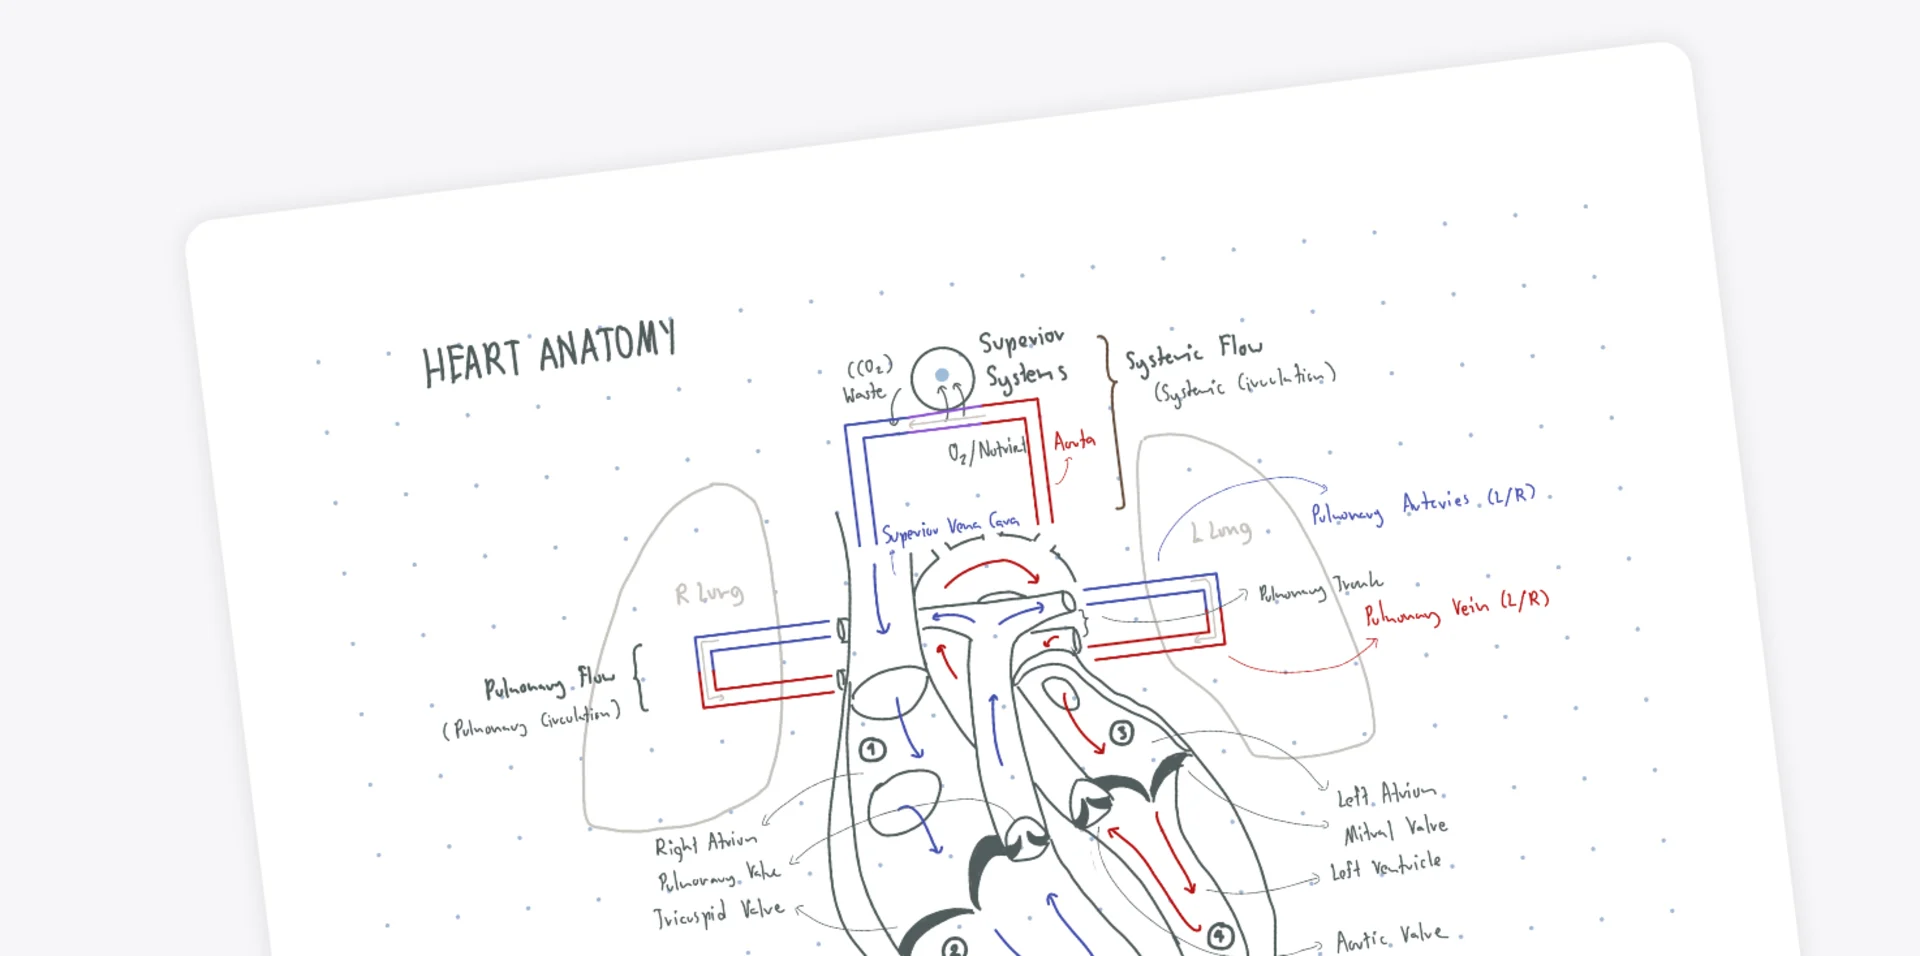 HEART ANATOMY
(CO₂)
Waste
Superior
Systems
Systemic Flow
(Systemic Circulation)
O₂/Nutrient
Aorta
Superior Vena Cava
R Lung
L Lung
Pulmonary Arteries (L/R)
Pulmonary Trunk
Pulmonary Vein (L/R)
Pulmonary Flow
(Pulmonary Circulation)
1
3
Right Atrium
Pulmonary Valve
Tricuspid Valve
2
4
Left Atrium
Mitral Valve
Left Ventricle
Aortic Valve